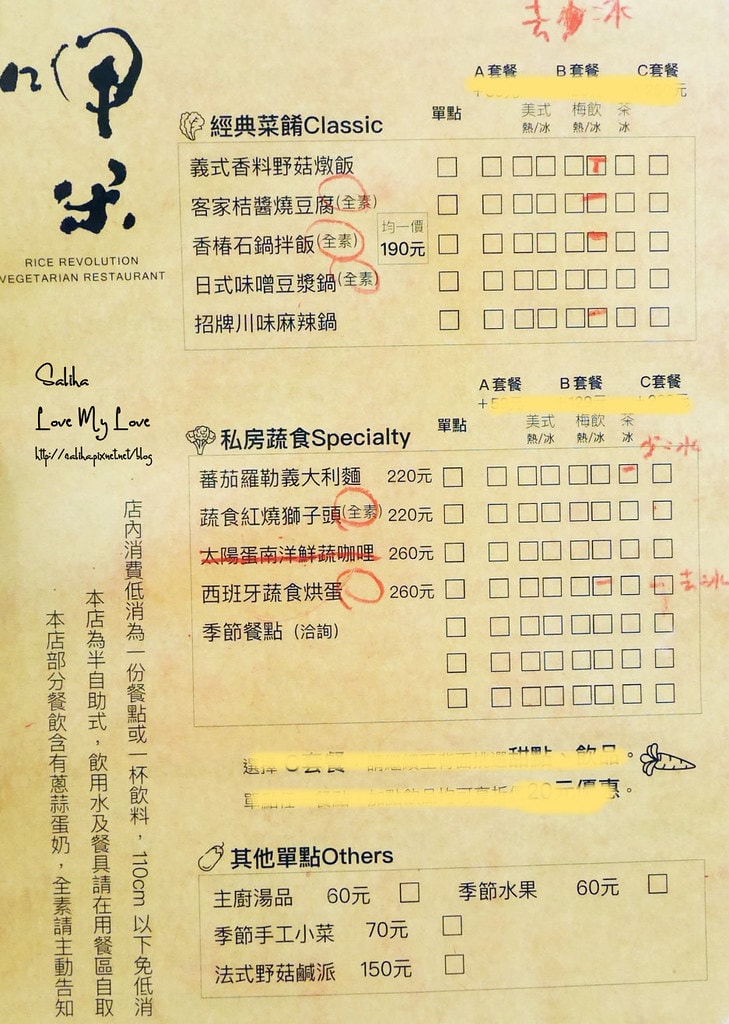 去少冰
呷
米
RICE REVOLUTION
VEGETARIAN RESTAURANT
Saliha
Love My Love
http://saliha.pixnet.net/blog
店內消費低消為一份餐點或一杯飲料，110cm 以下免低消
本店為半自助式，飲用水及餐具請在用餐區自取
本店部分餐飲含有蔥蒜蛋奶，全素請主動告知
經典菜餚Classic
單點
A套餐 B套餐 C套餐
美式 梅飲 茶
熱/冰 熱/冰 冰
義式香料野菇燉飯
客家桔醬燒豆腐(全素)
香椿石鍋拌飯(全素)
日式味噌豆漿鍋(全素)
招牌川味麻辣鍋
均一價
190元
私房蔬食Specialty
單點
A套餐 B套餐 C套餐
美式 梅飲 茶
熱/冰 熱/冰 冰
少冰
蕃茄羅勒義大利麵 220元
蔬食紅燒獅子頭(全素) 220元
太陽蛋南洋鮮蔬咖哩 260元
西班牙蔬食烘蛋 260元
去冰
季節餐點 (洽詢)
選擇 套餐 甜點、飲品。
單點 優惠。
其他單點Others
主廚湯品 60元 季節水果 60元
季節手工小菜 70元
法式野菇鹹派 150元